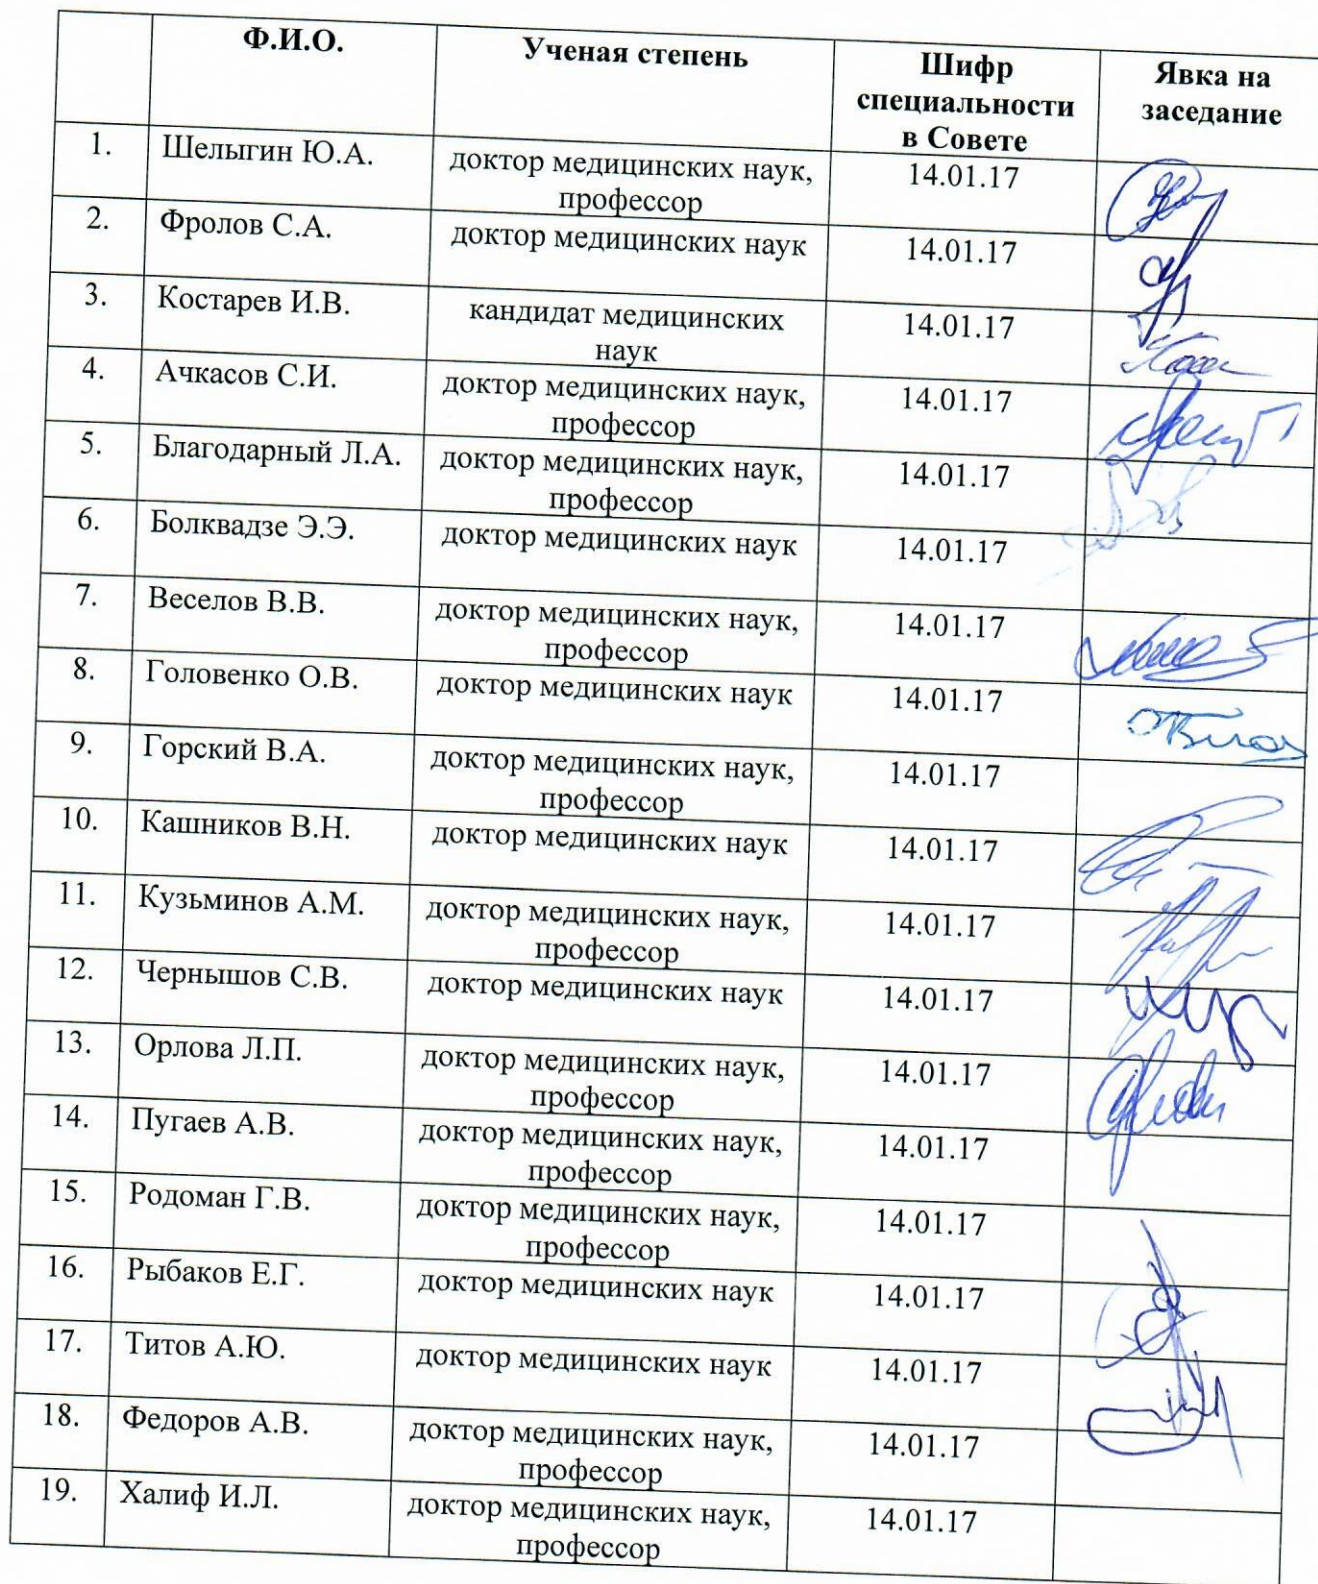 Ф.И.О. Ученая степень Шифр Явка на
специальности заседание
в Совете
1. Шелыгин Ю.А. доктор медицинских наук, 14.01.17
профессор
2. Фролов С.А. доктор медицинских наук 14.01.17
3. Костарев И.В. кандидат медицинских 14.01.17
наук
4. Ачкасов С.И. доктор медицинских наук, 14.01.17
профессор
5. Благодарный Л.А. доктор медицинских наук, 14.01.17
профессор
6. Болквадзе Э.Э. доктор медицинских наук 14.01.17
7. Веселов В.В. доктор медицинских наук, 14.01.17
профессор
8. Головенко О.В. доктор медицинских наук 14.01.17
9. Горский В.А. доктор медицинских наук, 14.01.17
профессор
10. Кашников В.Н. доктор медицинских наук 14.01.17
11. Кузьминов А.М. доктор медицинских наук, 14.01.17
профессор
12. Чернышов С.В. доктор медицинских наук 14.01.17
13. Орлова Л.П. доктор медицинских наук, 14.01.17
профессор
14. Пугаев А.В. доктор медицинских наук, 14.01.17
профессор
15. Родоман Г.В. доктор медицинских наук, 14.01.17
профессор
16. Рыбаков Е.Г. доктор медицинских наук 14.01.17
17. Титов А.Ю. доктор медицинских наук 14.01.17
18. Федоров А.В. доктор медицинских наук, 14.01.17
профессор
19. Халиф И.Л. доктор медицинских наук, 14.01.17
профессор